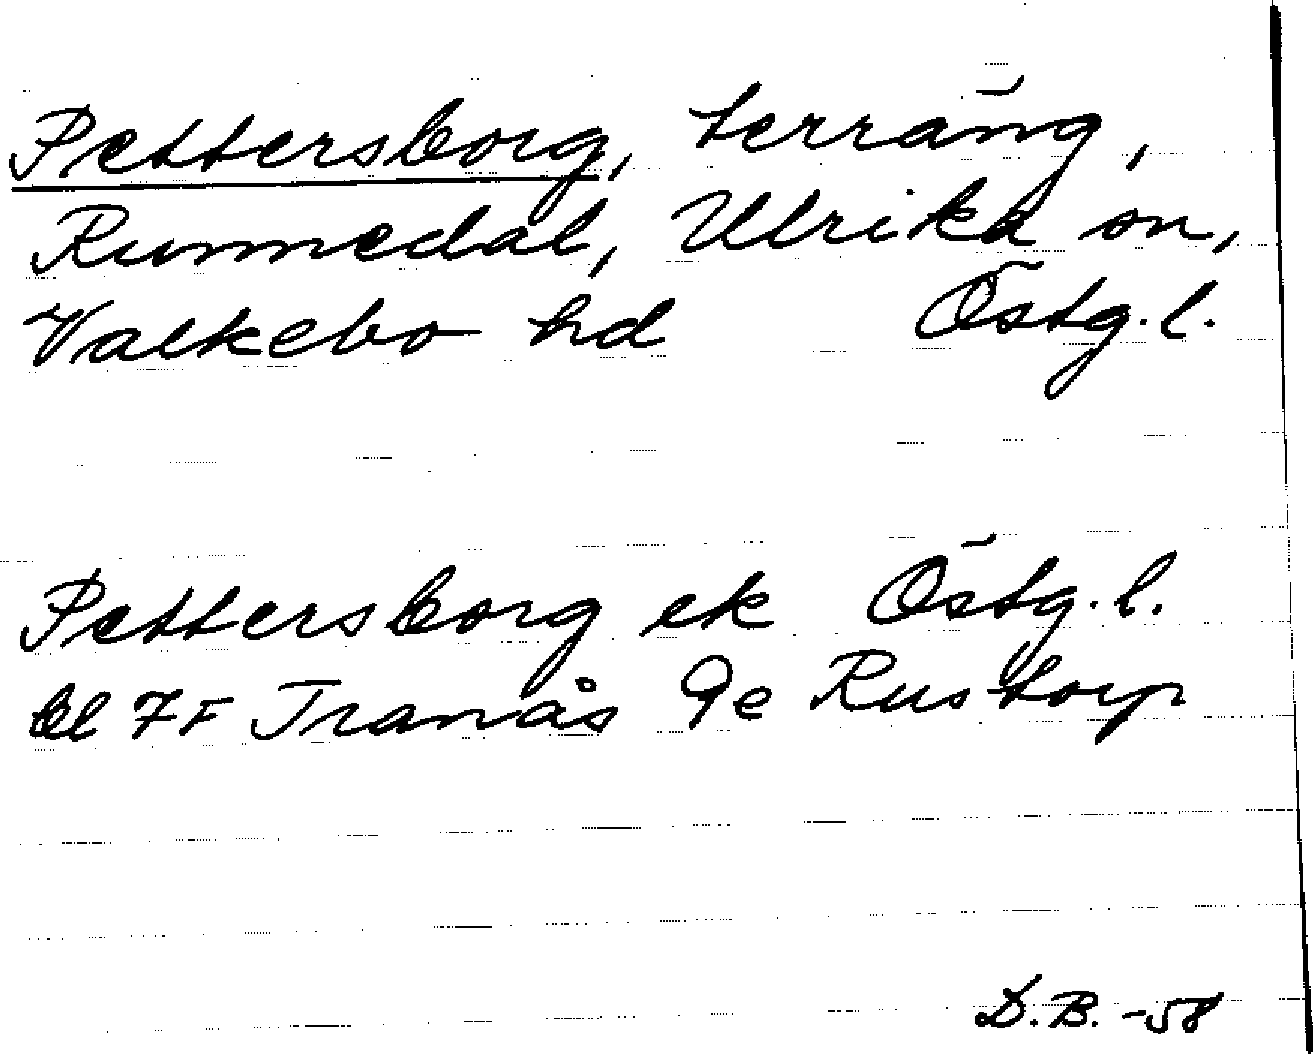 Pettersborg, terräng,
Runnedal, Ulrika sn,
Valkebo hd Östg.l.
Pettersborg ek Östg.l.
bl 7F Tranås 9e Rustorp
D.B. -58